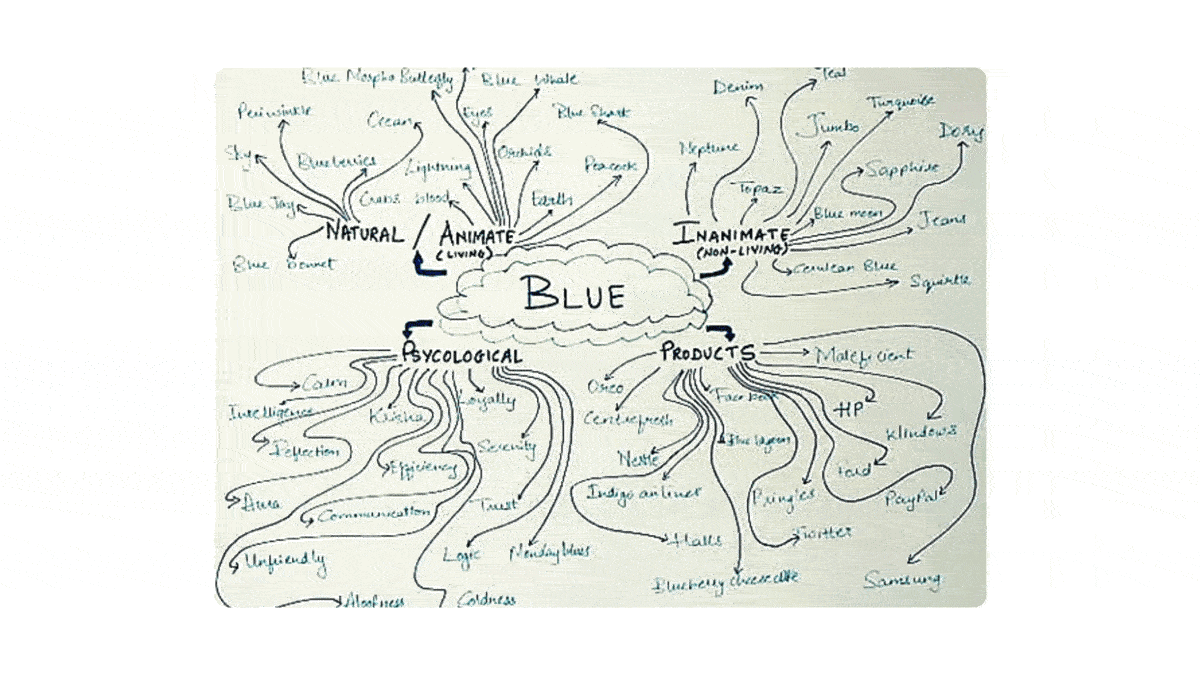 Blue Morpho Butterfly
Blue Whale
Periwinkle
Ocean
Eyes
Blue Shark
Sky
Blueberries
Lightning
Orchids
Peacock
Blue Jay
Crabs blood
Earth
NATURAL / ANIMATE
(LIVING)
Blue Bonnet
Denim
Teal
Turquoise
Jumbo
Dory
Neptune
Sapphire
Topaz
Blue moon
Jeans
INANIMATE
(NON-LIVING)
Cerulean Blue
Squirtle
BLUE
PSYCOLOGICAL
Calm
Intelligence
Loyalty
Reflection
Serenity
Efficiency
Aura
Trust
Communication
Unfriendly
Logic
Monday blues
Aloofness
Coldness
PRODUCTS
Maleficient
Oreo
Facebook
HP
Centrefresh
Windows
Blue lagoon
Nestle
Ford
Indigo airlines
Pringles
PayPal
Halls
Twitter
Blueberry cheesecake
Samsung